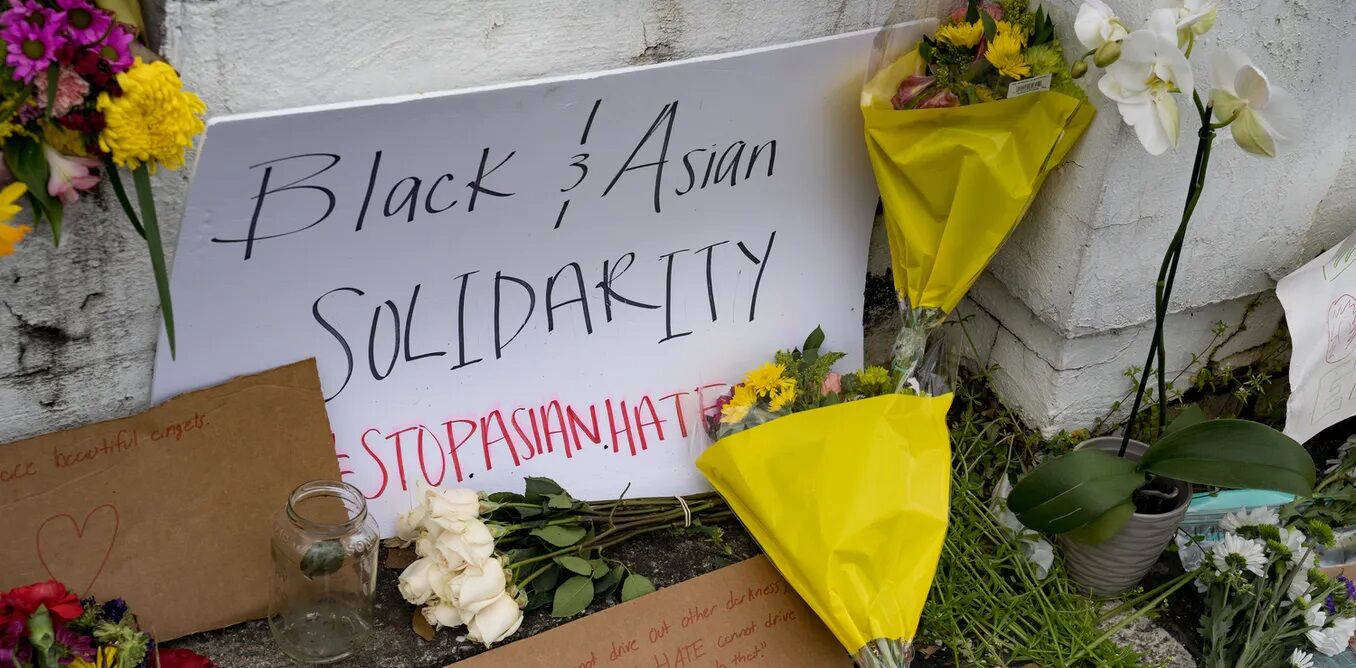 Black & Asian
SOLIDARITY
#STOP.ASIAN.HATE
beautiful angels.
not drive out other darkness,
HATE cannot drive
that."